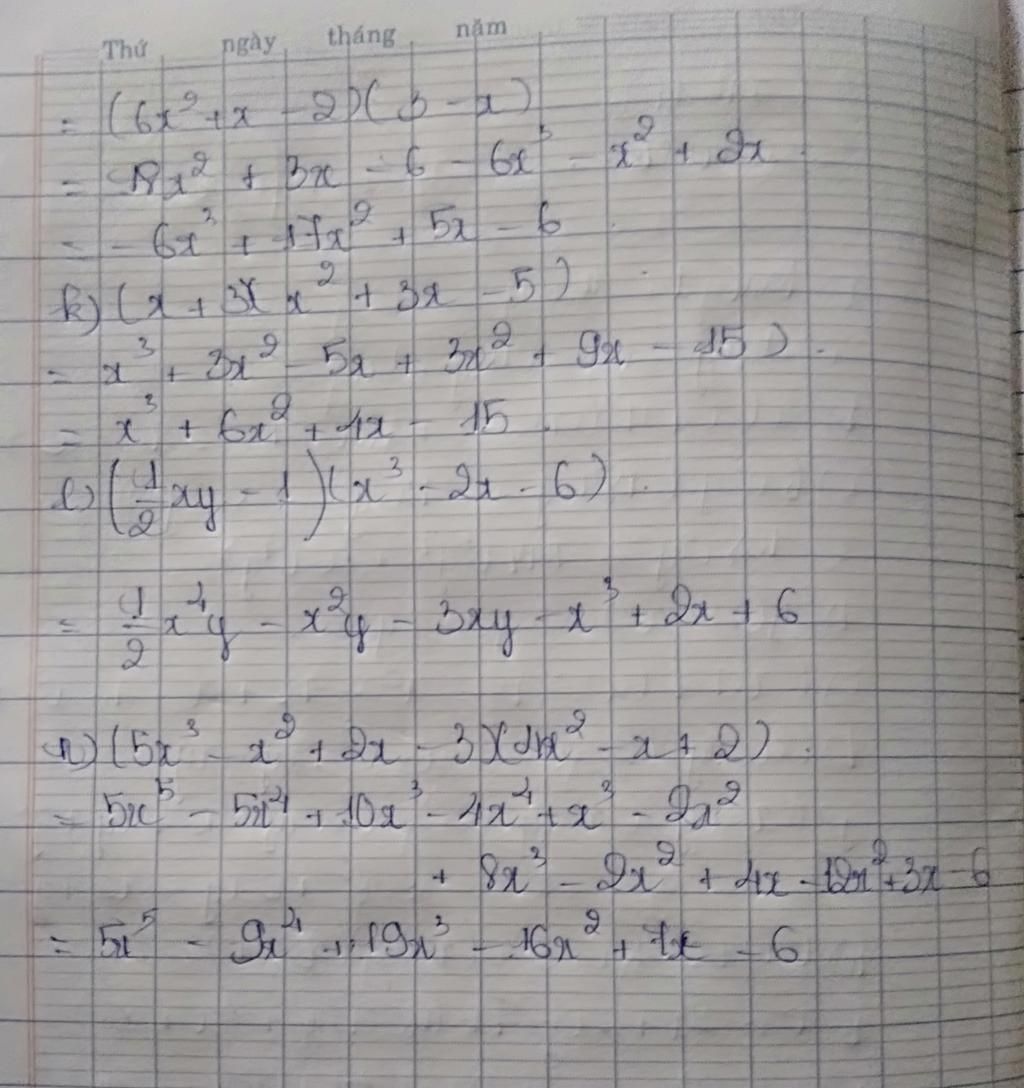 Thứ ngày tháng năm
= (6x² + x - 2)(3 - x)
= 18x² + 3x - 6 - 6x³ - x² + 2x
= - 6x³ + 17x² + 5x - 6
k) (x + 3)(x² + 3x - 5)
= x³ + 3x² - 5x + 3x² + 9x - 15).
= x³ + 6x² + 4x - 15
l) (1/2 xy - 1)(x³ - 2x - 6)
= 1/2 x⁴y - x²y - 3xy - x³ + 2x + 6
n) (5x³ - x² + 2x - 3)(4x² - x + 2)
= 5x⁵ - 5x⁴ + 10x³ - 4x⁴ + x³ - 2x²
+ 8x³ - 2x² + 4x - 12x² + 3x - 6
= 5x⁵ - 9x⁴ + 19x³ - 16x² + 7x - 6